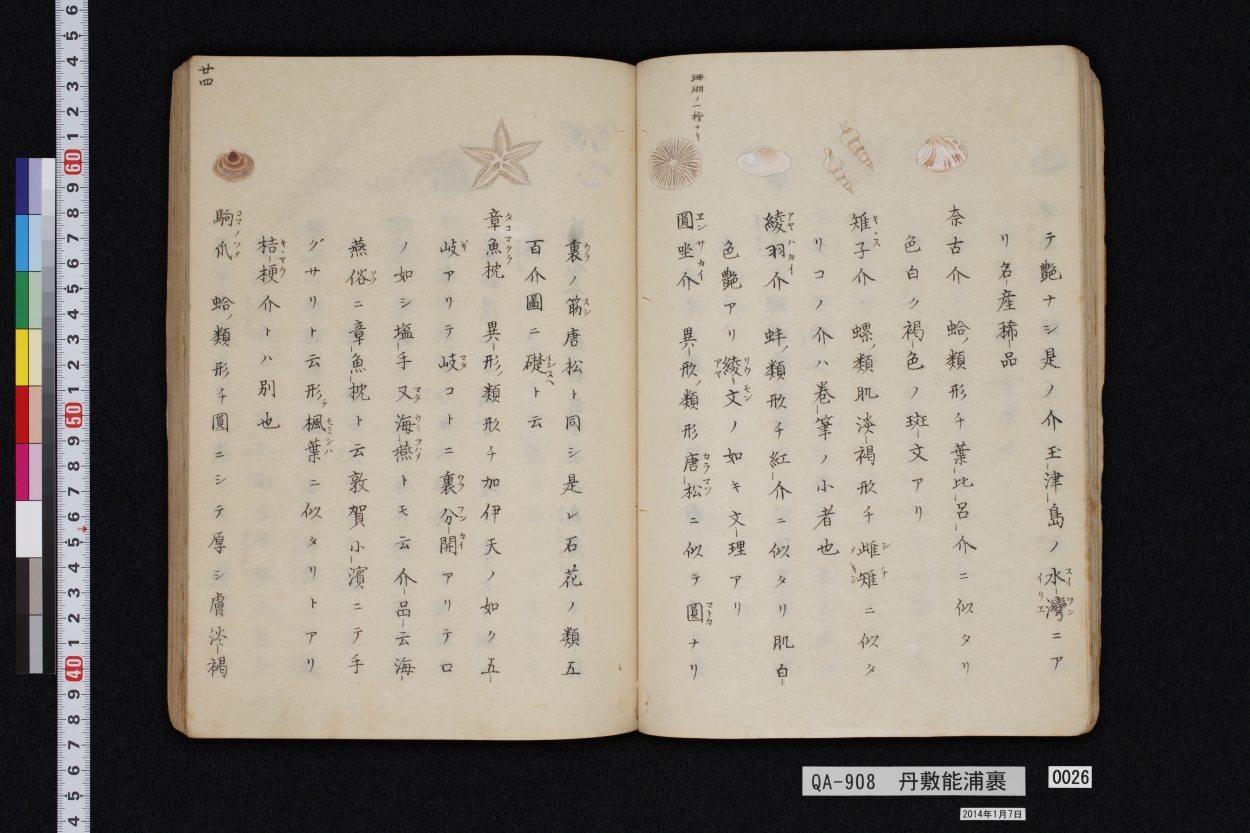 テ艶ナシ是ノ介玉津島ノ水灣ニア
リ名産稀品
奈古介 蛤ノ類形チ葉比呂介ニ似タリ
色白ク褐色ノ斑文アリ
雉子介 螺ノ類肌淡褐形チ雌雉ニ似タ
リコノ介ハ巻筆ノ小者也
綾羽介 蚌ノ類形チ紅介ニ似タリ肌白
色艶アリ綾文ノ如キ文理アリ
珊瑚ノ一種ナリ
圓坐介 異形ノ類形唐松ニ似テ圓ナリ
裏ノ筋唐松ト同シ是レ石花ノ類五
百介圖ニ礎ト云
章魚枕 異形ノ類形チ加伊天ノ如ク五
岐アリテ岐コトニ裏分開アリテロ
ノ如シ塩手又海燕トモ云介品云海
燕俗ニ章魚枕ト云敦賀小濱ニテ手
グサリト云形チ楓葉ニ似タリトアリ
桔梗介トハ別也
駒爪 蛤ノ類形チ圓ニシテ厚シ膚淡褐
廿四
QA-908 丹敷能浦裹
0026
2014年1月7日